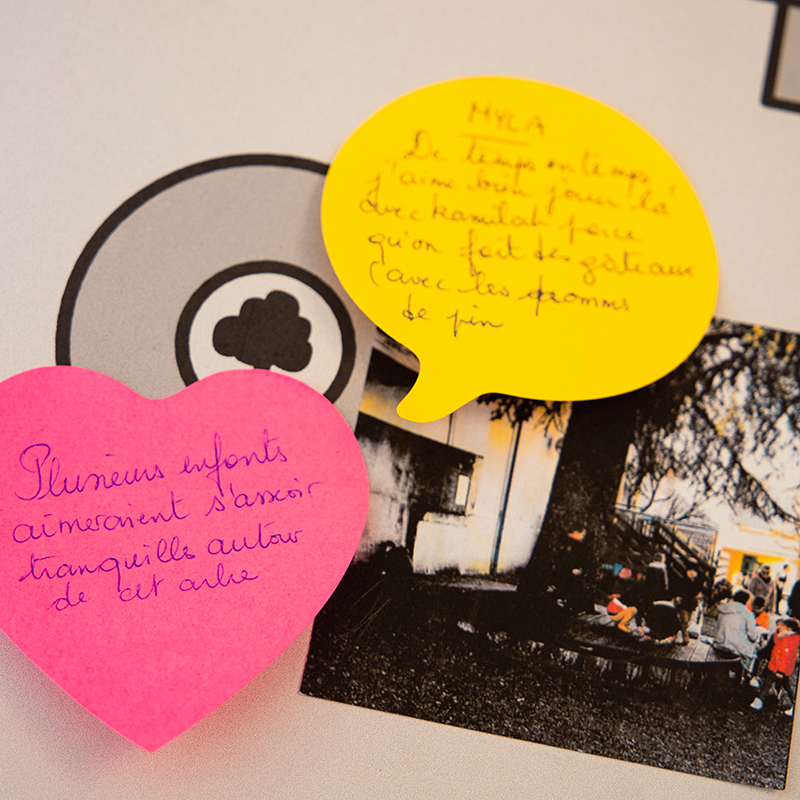 MYLA
De temps en temps
j'aime bien jouer là
avec kamilah parce
qu'on fait des gâteaux
(avec les pommes
de pin
Plusieurs enfants
aimeraient s'asseoir
tranquilles autour
de cet arbre